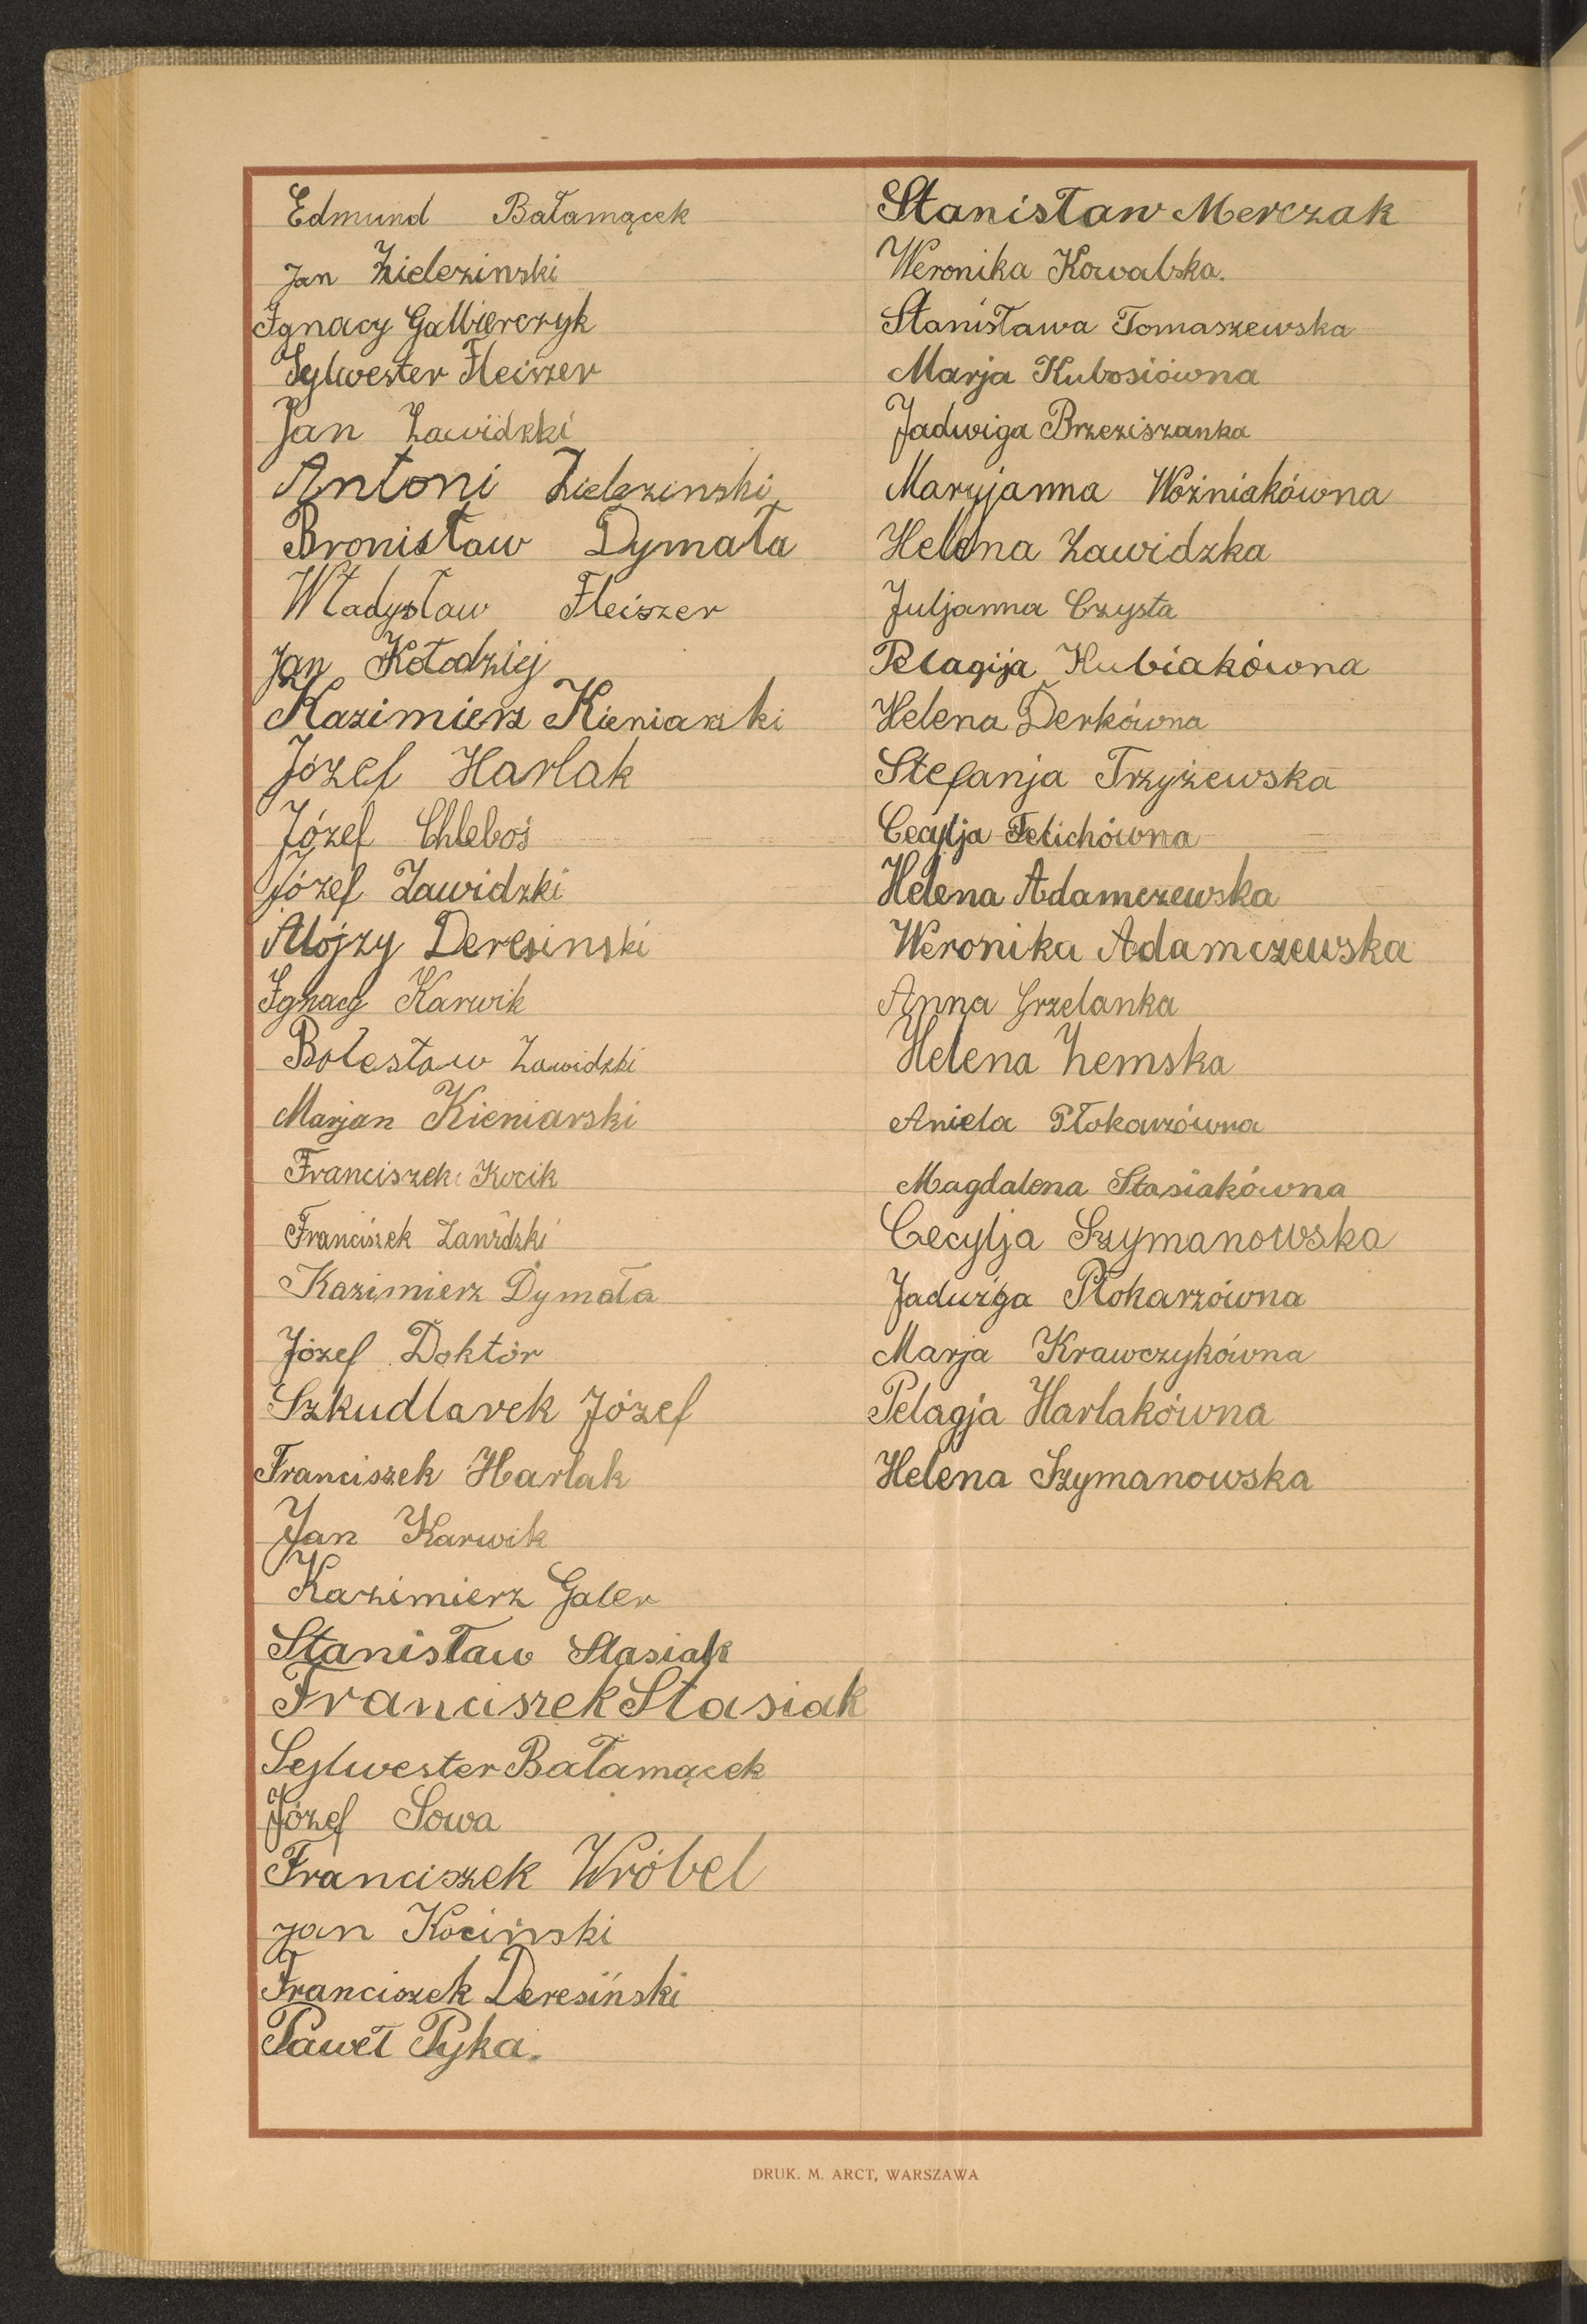 Edmund Bałamącek
Jan Zielezinski
Ignacy Galbierczyk
Sylwester Fleiszer
Jan Zawidzki
Antoni Zielezinski
Bronisław Dymała
Władysław Fleiszer
Jan Kołodziej
Kazimierz Kieniarski
Józef Harlak
Józef Chleboś
Józef Zawidzki
Alojzy Deresinski
Ignacy Karwik
Bolesław Zawidzki
Marjan Kieniarski
Franciszek Kocik
Franciszek Zawidzki
Kazimierz Dymała
Józef Doktór
Szkudlarek Józef
Franciszek Harlak
Jan Karwik
Kazimierz Galer
Stanisław Stasiak
Franciszek Stasiak
Sylwester Bałamącek
Józef Sowa
Franciszek Wróbel
Jan Kociński
Franciszek Deresiński
Paweł Pyka.
Stanisław Merczak
Weronika Kowalska.
Stanisława Tomaszewska
Marja Kubosiówna
Jadwiga Brzeziszanka
Maryjanna Woźniakówna
Helena Zawidzka
Juljanna Czysta
Pelagija Kubiakówna
Helena Derkówna
Stefanja Trzyżewska
Cecylja Felichówna
Helena Adamczewska
Weronika Adamczewska
Anna Grzelanka
Helena Zemska
Aniela Płokarzówna
Magdalena Stasiakówna
Cecylja Szymanowska
Jadwiga Płokarzówna
Marja Krawczykówna
Pelagja Harlakówna
Helena Szymanowska
DRUK. M. ARCT, WARSZAWA